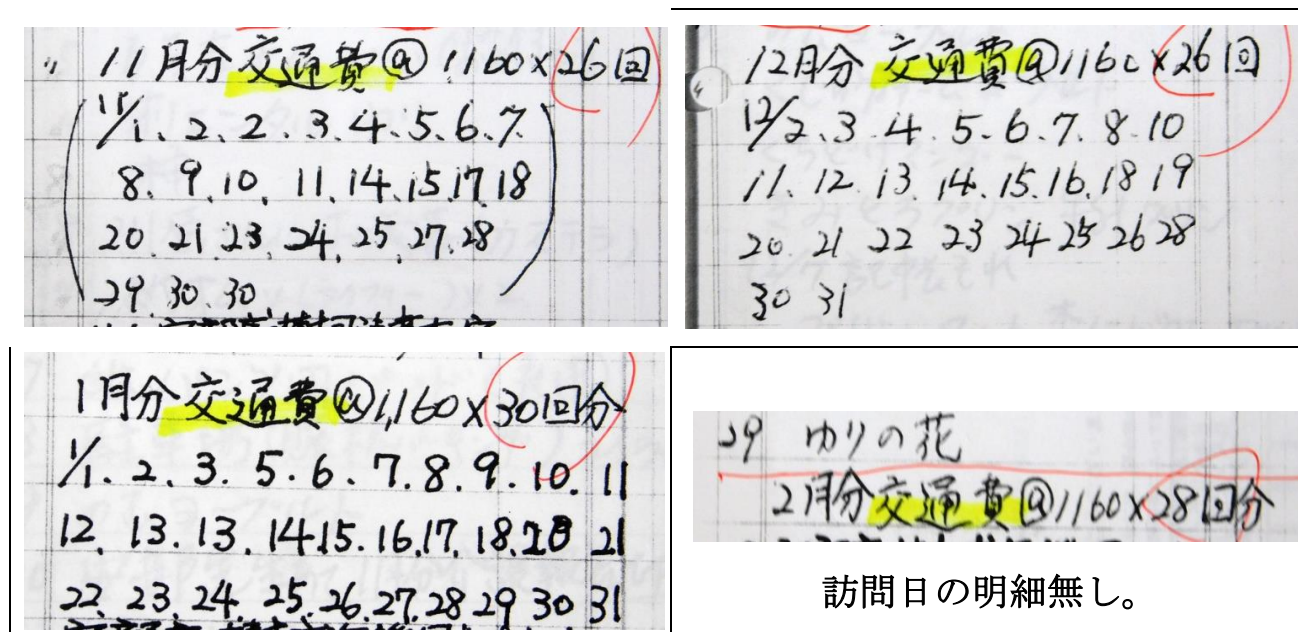 〃 11月分 交通費@ 1160×26回
11/1、2、2、3、4、5、6、7
8、9、10、11、14、15、17、18
20、21、23、24、25、27、28
29、30、30
12月分 交通費@1160×26回
12/2、3 4、5、6、7、8、10
11、12 13、14、15、16、18 19
20 21 22 23 24 25 26 28
30 31
1月分交通費@1,160×30回分
1/1、2、3、5、6、7、8、9、10、11
12、13、13、14、15、16、17、18、20 21
22、23、24、25、26、27、28 29 30 31
29 ゆりの花
2月分交通費@1160×28回分
訪問日の明細無し。